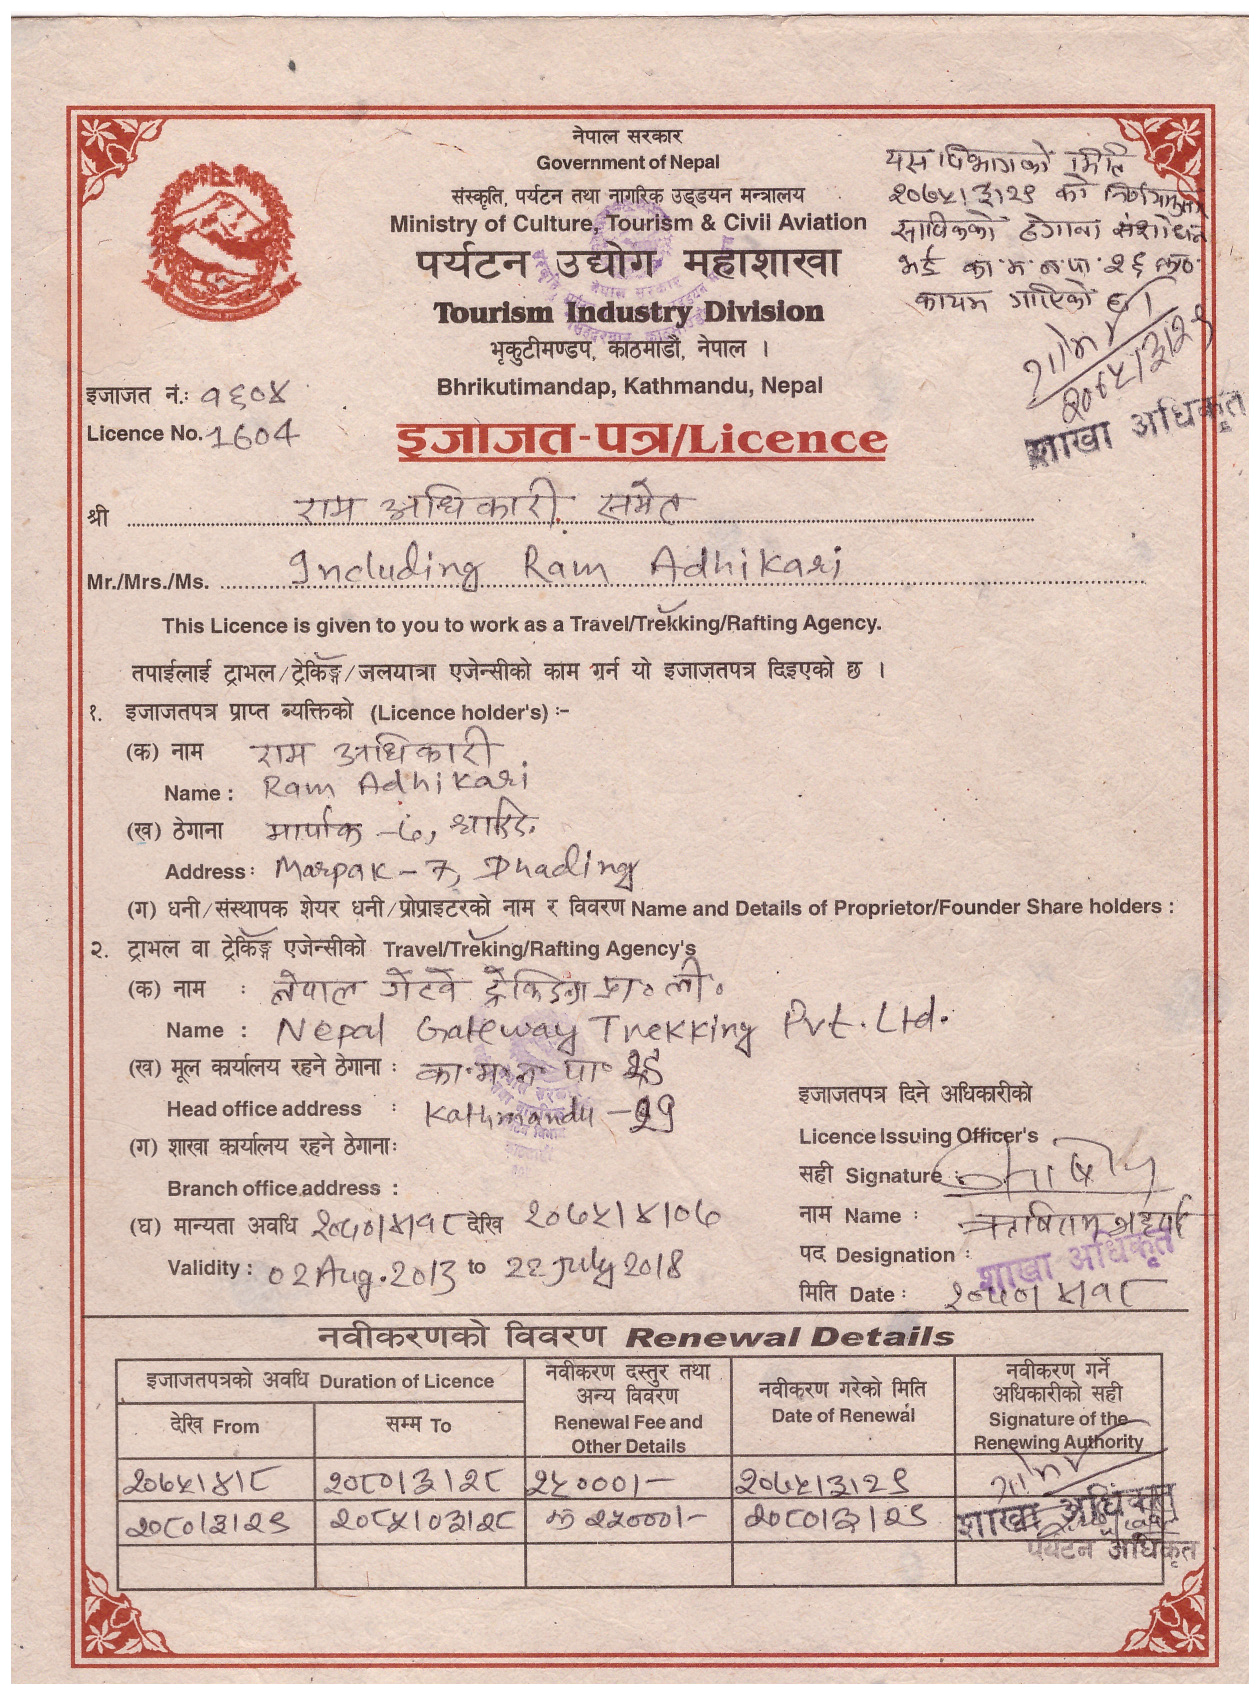 नेपाल सरकार
Government of Nepal
संस्कृति, पर्यटन तथा नागरिक उड्डयन मन्त्रालय
Ministry of Culture, Tourism & Civil Aviation
पर्यटन उद्योग महाशाखा
Tourism Industry Division
भृकुटीमण्डप, काठमाडौं, नेपाल ।
Bhrikutimandap, Kathmandu, Nepal
यस विभागको मिति
२०७५।३।२९ को निर्णयानुसार
साविकको ठेगाना संशोधन
भई का.म.न.पा. २६
कायम गरिएको छ।
२०७५।३।२९
शाखा अधिकृत
इजाजत नं.: १६०४
Licence No. 1604
इजाजत-पत्र/Licence
श्री राम अधिकारी समेत
Mr./Mrs./Ms. Including Ram Adhikari
This Licence is given to you to work as a Travel/Trekking/Rafting Agency.
तपाईलाई ट्राभल/ट्रेकिङ्ग/जलयात्रा एजेन्सीको काम गर्न यो इजाजतपत्र दिइएको छ ।
१. इजाजतपत्र प्राप्त ब्यक्तिको (Licence holder's) :-
(क) नाम राम अधिकारी
Name : Ram Adhikari
(ख) ठेगाना मार्पाक -७, धादिङ
Address : Marpak - 7, Dhading
(ग) धनी/संस्थापक शेयर धनी/प्रोप्राइटरको नाम र विवरण Name and Details of Proprietor/Founder Share holders :
२. ट्राभल वा ट्रेकिङ्ग एजेन्सीको Travel/Treking/Rafting Agency's
(क) नाम : नेपाल गेटवे ट्रेकिङ प्रा॰ ली॰
Name : Nepal Gateway Trekking Pvt. Ltd.
(ख) मूल कार्यालय रहने ठेगाना : का.म.न.पा. २९
Head office address : Kathmandu - 29
(ग) शाखा कार्यालय रहने ठेगाना:
Branch office address :
(घ) मान्यता अवधि २०७०।४।१८ देखि २०७५।४।०७
Validity : 02 Aug. 2013 to 22 July 2018
इजाजतपत्र दिने अधिकारीको
Licence Issuing Officer's
सही Signature :
नाम Name :
पद Designation : शाखा अधिकृत
मिति Date : २०७०।४।१८
नवीकरणको विवरण Renewal Details
इजाजतपत्रको अवधि Duration of Licence
देखि From
सम्म To
नवीकरण दस्तुर तथा
अन्य विवरण
Renewal Fee and
Other Details
नवीकरण गरेको मिति
Date of Renewal
नवीकरण गर्ने
अधिकारीको सही
Signature of the
Renewing Authority
२०७५।४।८ २०८०।३।२८ २५०००।- २०७५।३।२९
शाखा अधिकृत
२०८०।३।२९ २०८५।०३।२८ रू २५०००।- २०८०।३।२९
पर्यटन अधिकृत